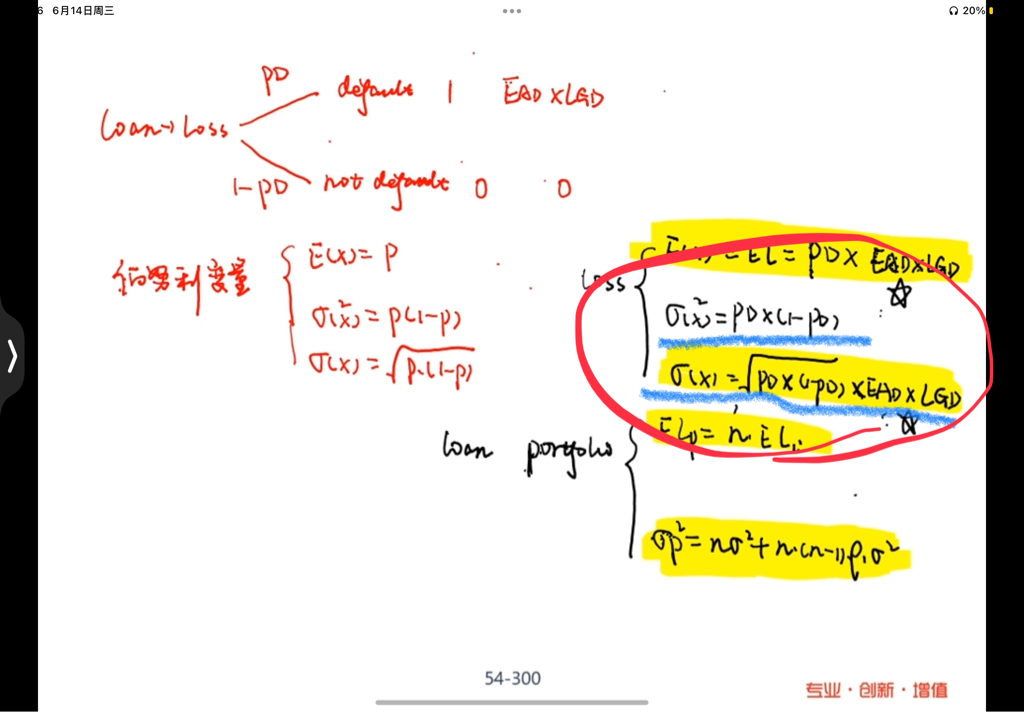 6 6月14日周三
20%
PD default 1 EAD×LGD
Loan→Loss
1-PD not default 0 0
伯努利变量
E(x)=P
σ(x)²=P(1-P)
σ(x)=√P·(1-P)
Loss
E(x)=EL=PD×EAD×LGD
σ(x)²=PD×(1-PD)
σ(x)=√PD×(1-PD)×EAD×LGD
Loan portfolio
ELp=n·EL
σp²=nσ²+n·(n-1)ρ·σ²
54-300
专业·创新·增值